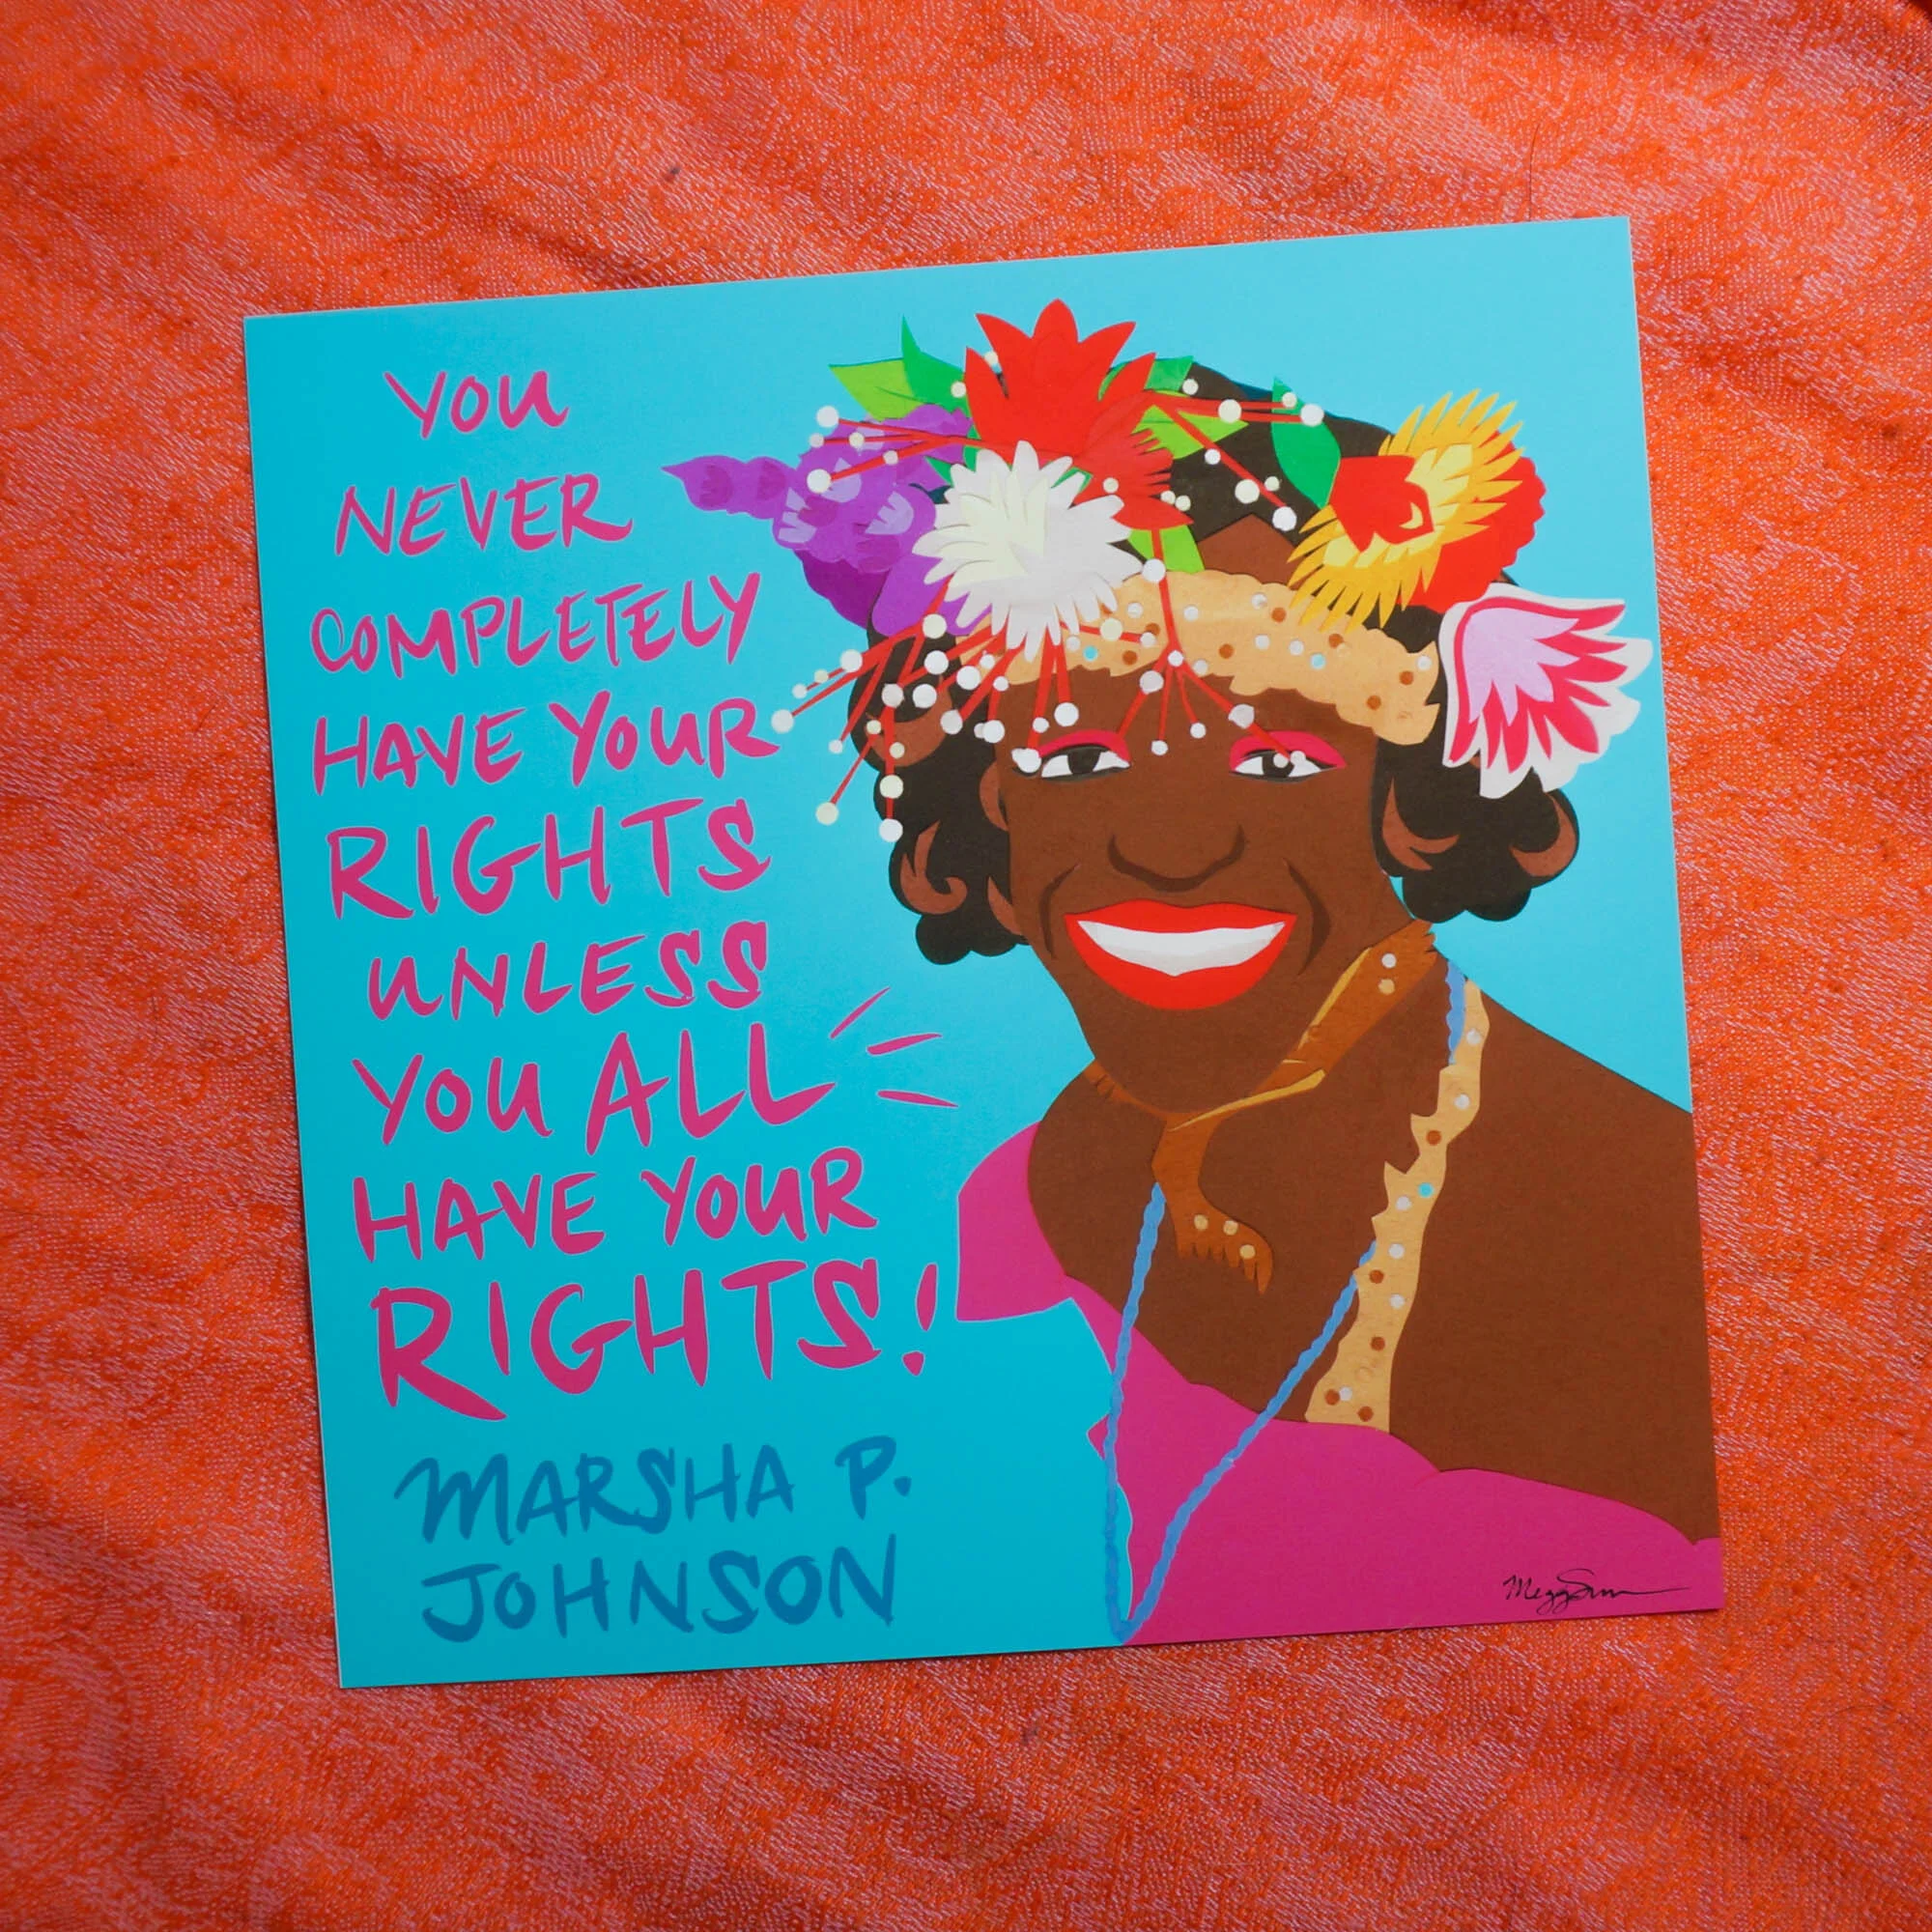 YOU
NEVER
COMPLETELY
HAVE YOUR
RIGHTS
UNLESS
YOU ALL
HAVE YOUR
RIGHTS!
MARSHA P.
JOHNSON